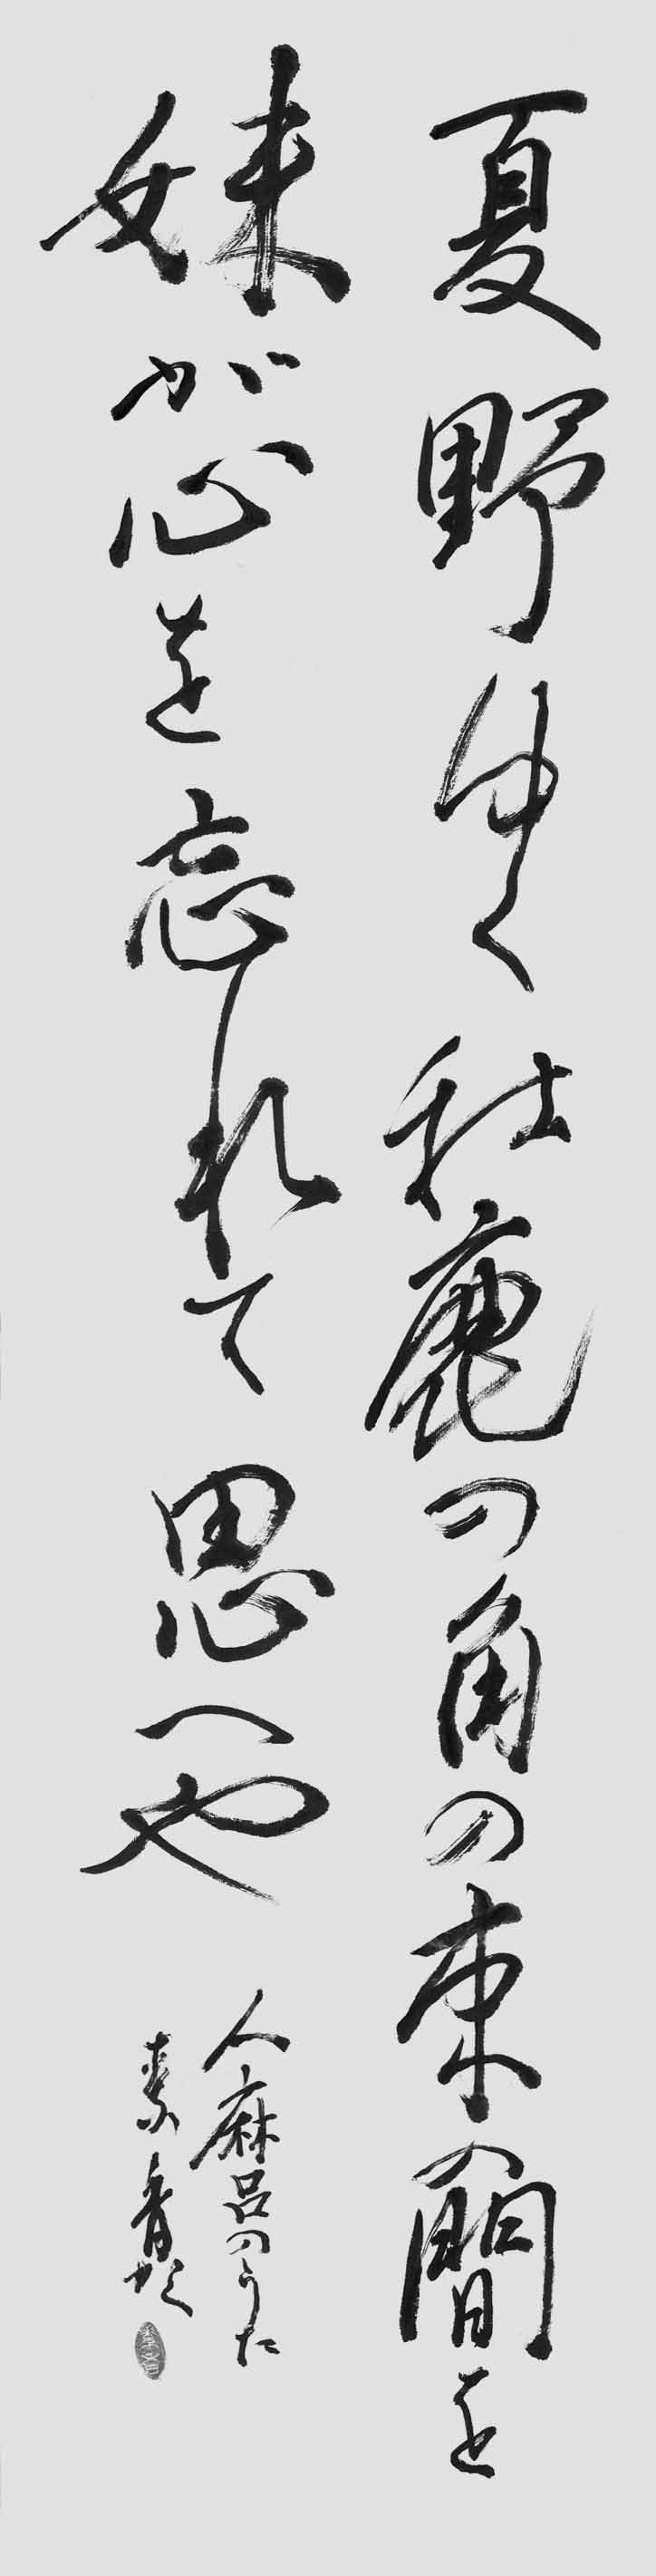 夏野ゆく牡鹿の角の束の間を
妹が心を忘れて思へや
人麻呂のうた
素香かく